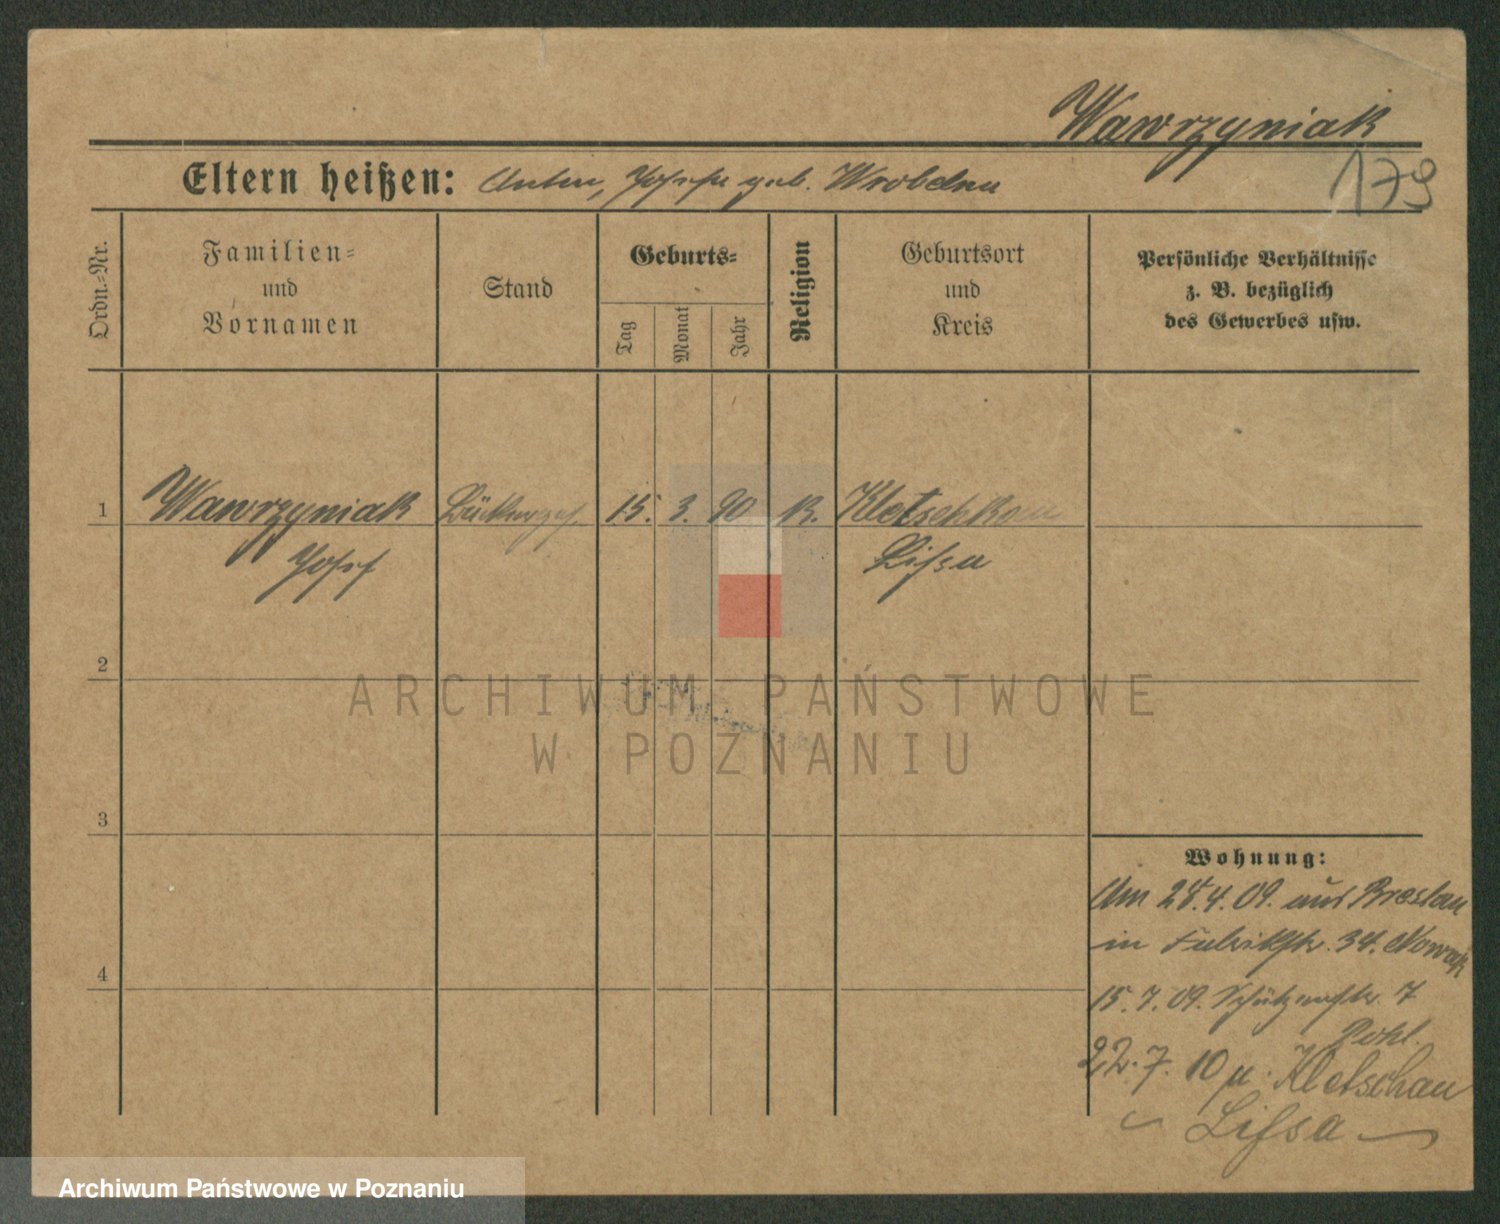 Wawrzyniak
179
Eltern heißen: Anton, Josefa geb. Wrobelna
Ordn.-Nr.
Familien-
und
Vornamen
Stand
Geburts-
Tag
Monat
Jahr
Religion
Geburtsort
und
Kreis
Persönliche Verhältnisse
z. B. bezüglich
des Gewerbes usw.
1 Wawrzyniak Bäckerges. 15. 3. 90 K. Kletschkau
Josef Lissa
2
ARCHIWUM PAŃSTWOWE
W POZNANIU
3
Wohnung:
Am 28.4.09. aus Breslau
in Fabrikstr. 34. Nowak
4
15.7.09. Schützenstr. 7
Pohl.
22.7.10 n. Kletschau
Lissa
Archiwum Państwowe w Poznaniu